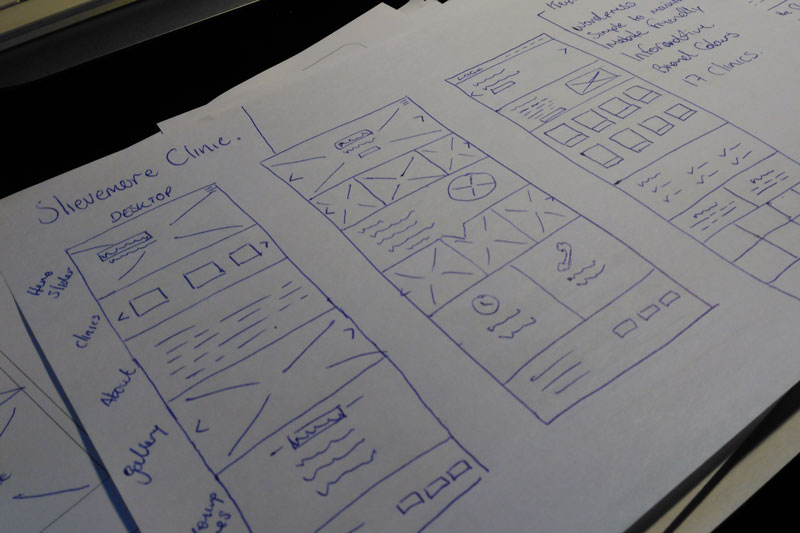 Slievemore Clinic.
DESKTOP
Hero
Slider
Clinics
About
Gallery
LOGO
Wordpress
Simple to
Mobile Friendly
Informative
Brand Colours
17 Clinics.